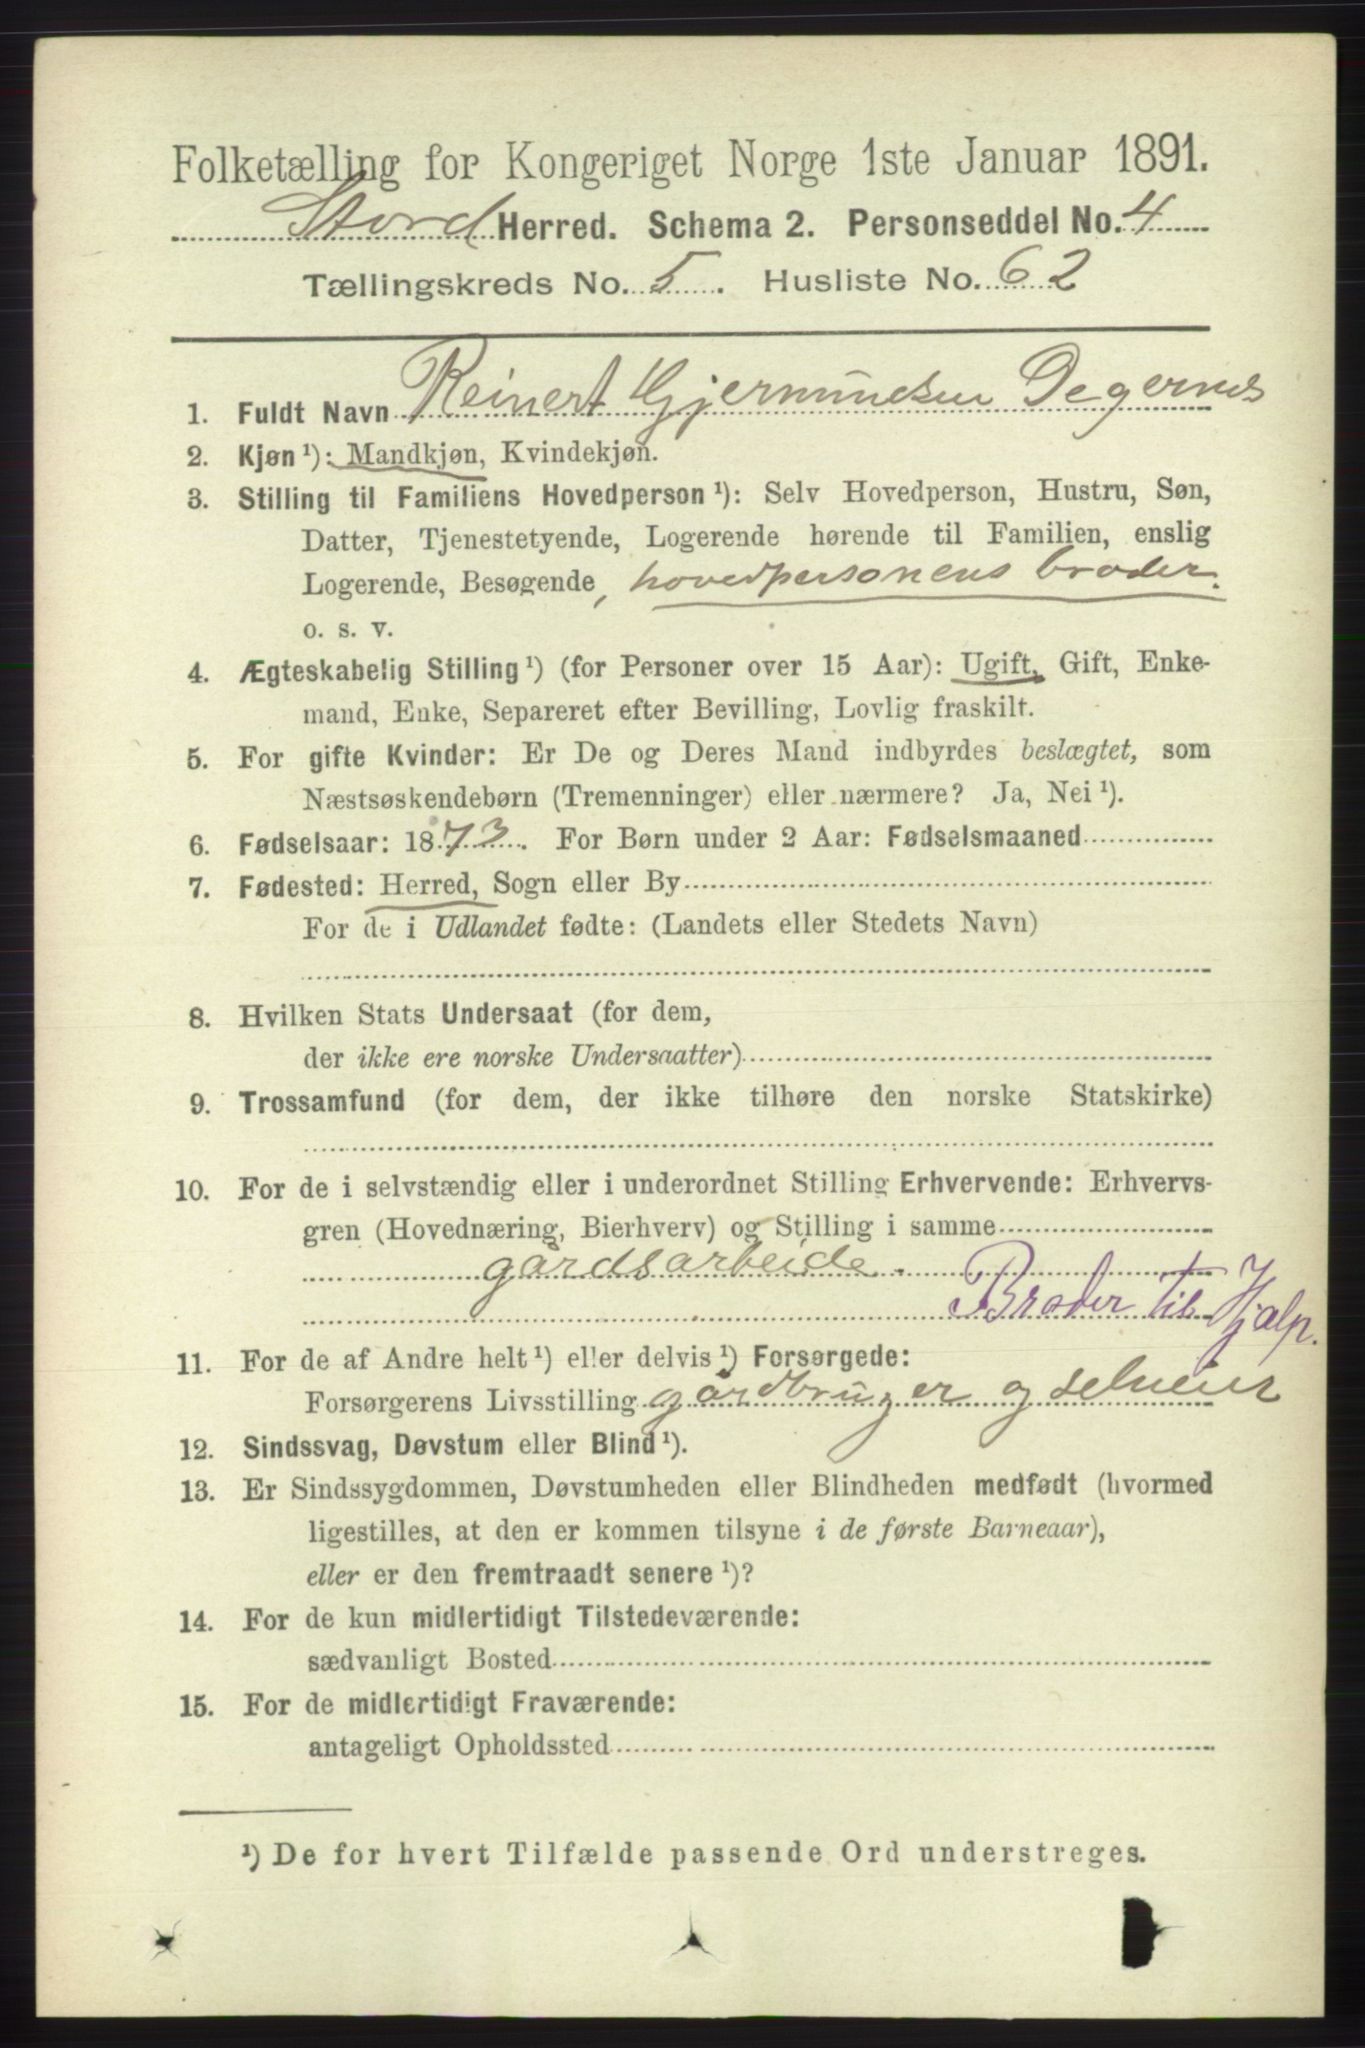 Folketælling for Kongeriget Norge 1ste Januar 1891.
Stord Herred. Schema 2. Personseddel No. 4
Tællingskreds No. 5. Husliste No. 62
1. Fuldt Navn Reinert Gjermundsen Degernes
2. Kjøn ¹): Mandkjøn, Kvindekjøn.
3. Stilling til Familiens Hovedperson ¹): Selv Hovedperson, Hustru, Søn,
Datter, Tjenestetyende, Logerende hørende til Familien, enslig
Logerende, Besøgende, hovedpersonens broder.
o. s. v.
4. Ægteskabelig Stilling ¹) (for Personer over 15 Aar): Ugift, Gift, Enke-
mand, Enke, Separeret efter Bevilling, Lovlig fraskilt.
5. For gifte Kvinder: Er De og Deres Mand indbyrdes beslægtet, som
Næstsøskendebørn (Tremenninger) eller nærmere? Ja, Nei ¹).
6. Fødselsaar: 1873. For Børn under 2 Aar: Fødselsmaaned
7. Fødested: Herred, Sogn eller By
For de i Udlandet fødte: (Landets eller Stedets Navn)
8. Hvilken Stats Undersaat (for dem,
der ikke ere norske Undersaatter)
9. Trossamfund (for dem, der ikke tilhøre den norske Statskirke)
10. For de i selvstændig eller i underordnet Stilling Erhvervende: Erhvervs-
gren (Hovednæring, Bierhverv) og Stilling i samme
gårdsarbeide.
Broder til Hjælp.
11. For de af Andre helt ¹) eller delvis ¹) Forsørgede:
Forsørgerens Livsstilling gårdbruger og selveier
12. Sindssvag, Døvstum eller Blind ¹).
13. Er Sindssygdommen, Døvstumheden eller Blindheden medfødt (hvormed
ligestilles, at den er kommen tilsyne i de første Barneaar),
eller er den fremtraadt senere ¹)?
14. For de kun midlertidigt Tilstedeværende:
sædvanligt Bosted
15. For de midlertidigt Fraværende:
antageligt Opholdssted
¹) De for hvert Tilfælde passende Ord understreges.